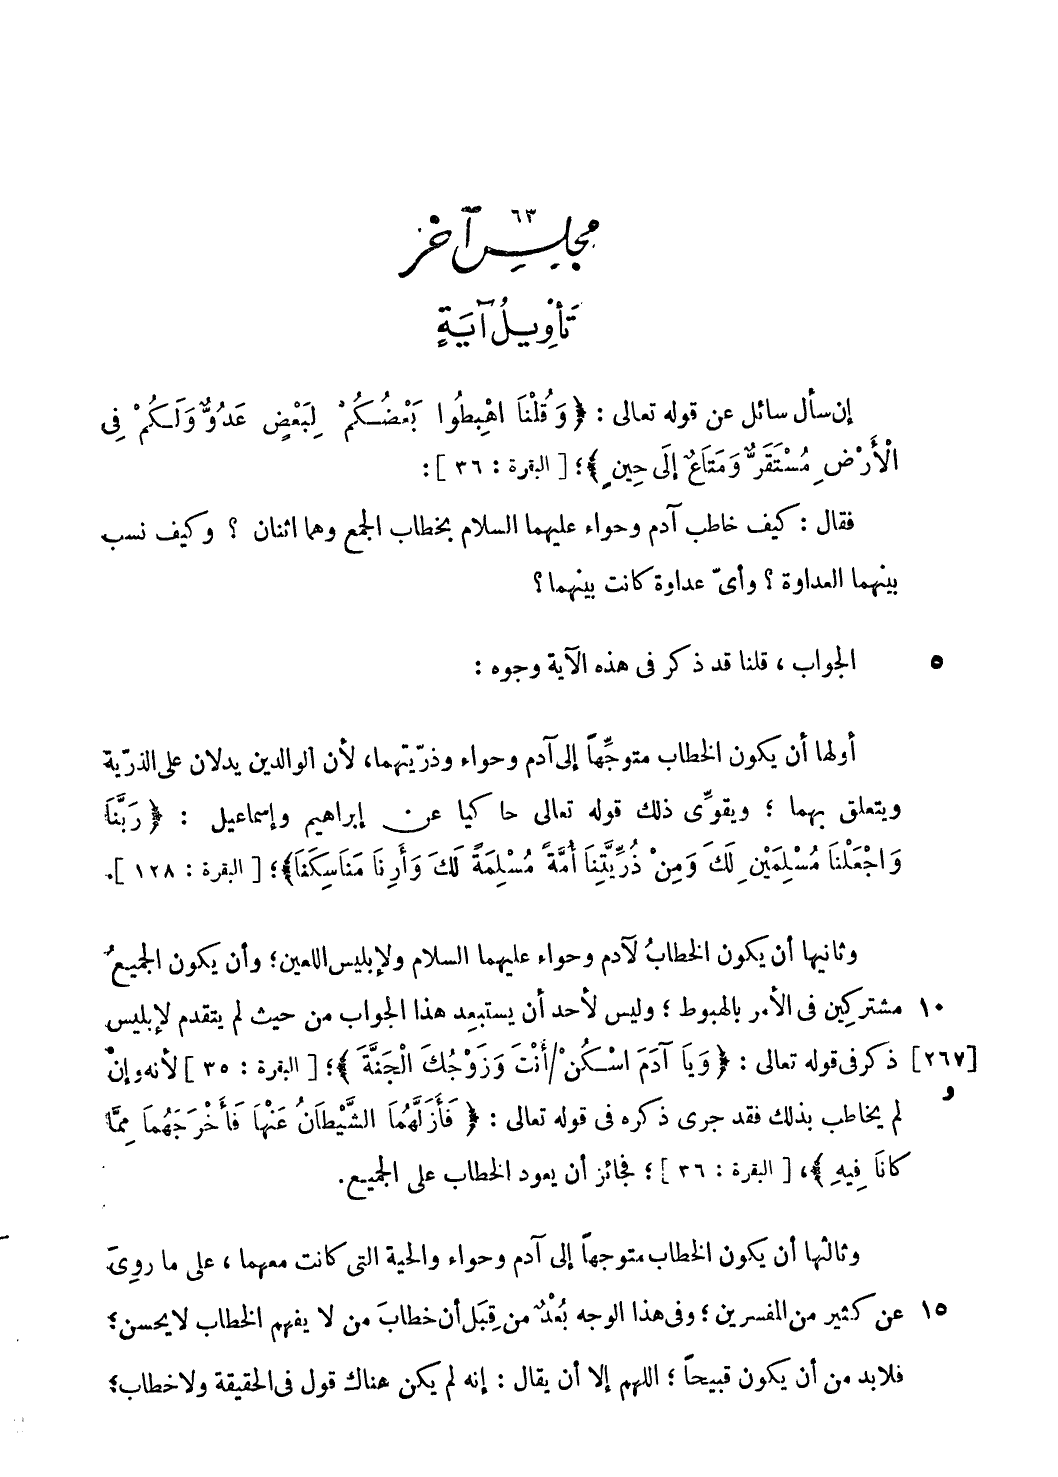 ٦٣
مجلس آخر
تَأْوِيلُ آيَةٍ
إن سأل سائل عن قوله تعالى : ﴿ وَقُلْنَا اهْبِطُوا بَعْضُكُمْ لِبَعْضٍ عَدُوٌّ وَلَكُمْ فِى
الْأَرْضِ مُسْتَقَرٌّ وَمَتَاعٌ إلَى حِينٍ ﴾؛ [ البقرة : ٣٦ ] :
فقال : كيف خاطب آدم وحواء عليهما السلام بخطاب الجمع وهما اثنان ؟ وكيف نسب
بينهما العداوة ؟ وأىّ عداوة كانت بينهما ؟
٥ الجواب ، قلنا قد ذكر فى هذه الآية وجوه :
أولها أن يكون الخطاب متوجِّهاً إلى آدم وحواء وذرّيتهما، لأن الوالدين يدلان على الذرّية
ويتعلق بهما ؛ ويقوِّى ذلك قوله تعالى حاكيا عن إبراهيم وإسماعيل : ﴿ رَبَّنَا
وَاجْعَلْنَا مُسْلِمَيْنِ لَكَ وَمِنْ ذُرِّيَّتِنَا أُمَّةً مُسْلِمَةً لَكَ وَأَرِنَا مَنَاسِكَنَا﴾؛ [ البقرة : ١٢٨ ].
وثانيها أن يكون الخطابُ لآدم وحواء عليهما السلام ولإبليس اللعين؛ وأن يكون الجميعُ
١٠ مشتركِين فى الأمر بالهبوط ؛ وليس لأحد أن يستبعِد هذا الجواب من حيث لم يتقدم لإبليس
[٢٦٧ ذكر فى قوله تعالى : ﴿ وَيَا آدَمَ اسْكُنْ/أَنْتَ وَزَوْجُكَ الْجَنَّةَ ﴾؛ [ البقرة : ٣٥ ] لأنه وإنْ
و] لم يخاطب بذلك فقد جرى ذكره فى قوله تعالى : ﴿ فَأَزَلَّهُمَا الشَّيْطَانُ عَنْهَا فَأَخْرَجَهُمَا مِمَّا
كانَا فِيهِ ﴾، [ البقرة : ٣٦ ] ؛ فجائز أن يعود الخطاب على الجميع.
وثالثها أن يكون الخطاب متوجهاً إلى آدم وحواء والحية التى كانت معهما ، على ما روِىَ
١٥ عن كثير من المفسرين ؛ وفى هذا الوجه بُعْدٌ من قِبَل أن خطابَ من لا يفهم الخطاب لا يحسن؛
فلابد من أن يكون قبيحاً ؛ اللهم إلا أن يقال : إنه لم يكن هناك قول فى الحقيقة ولا خطاب؛